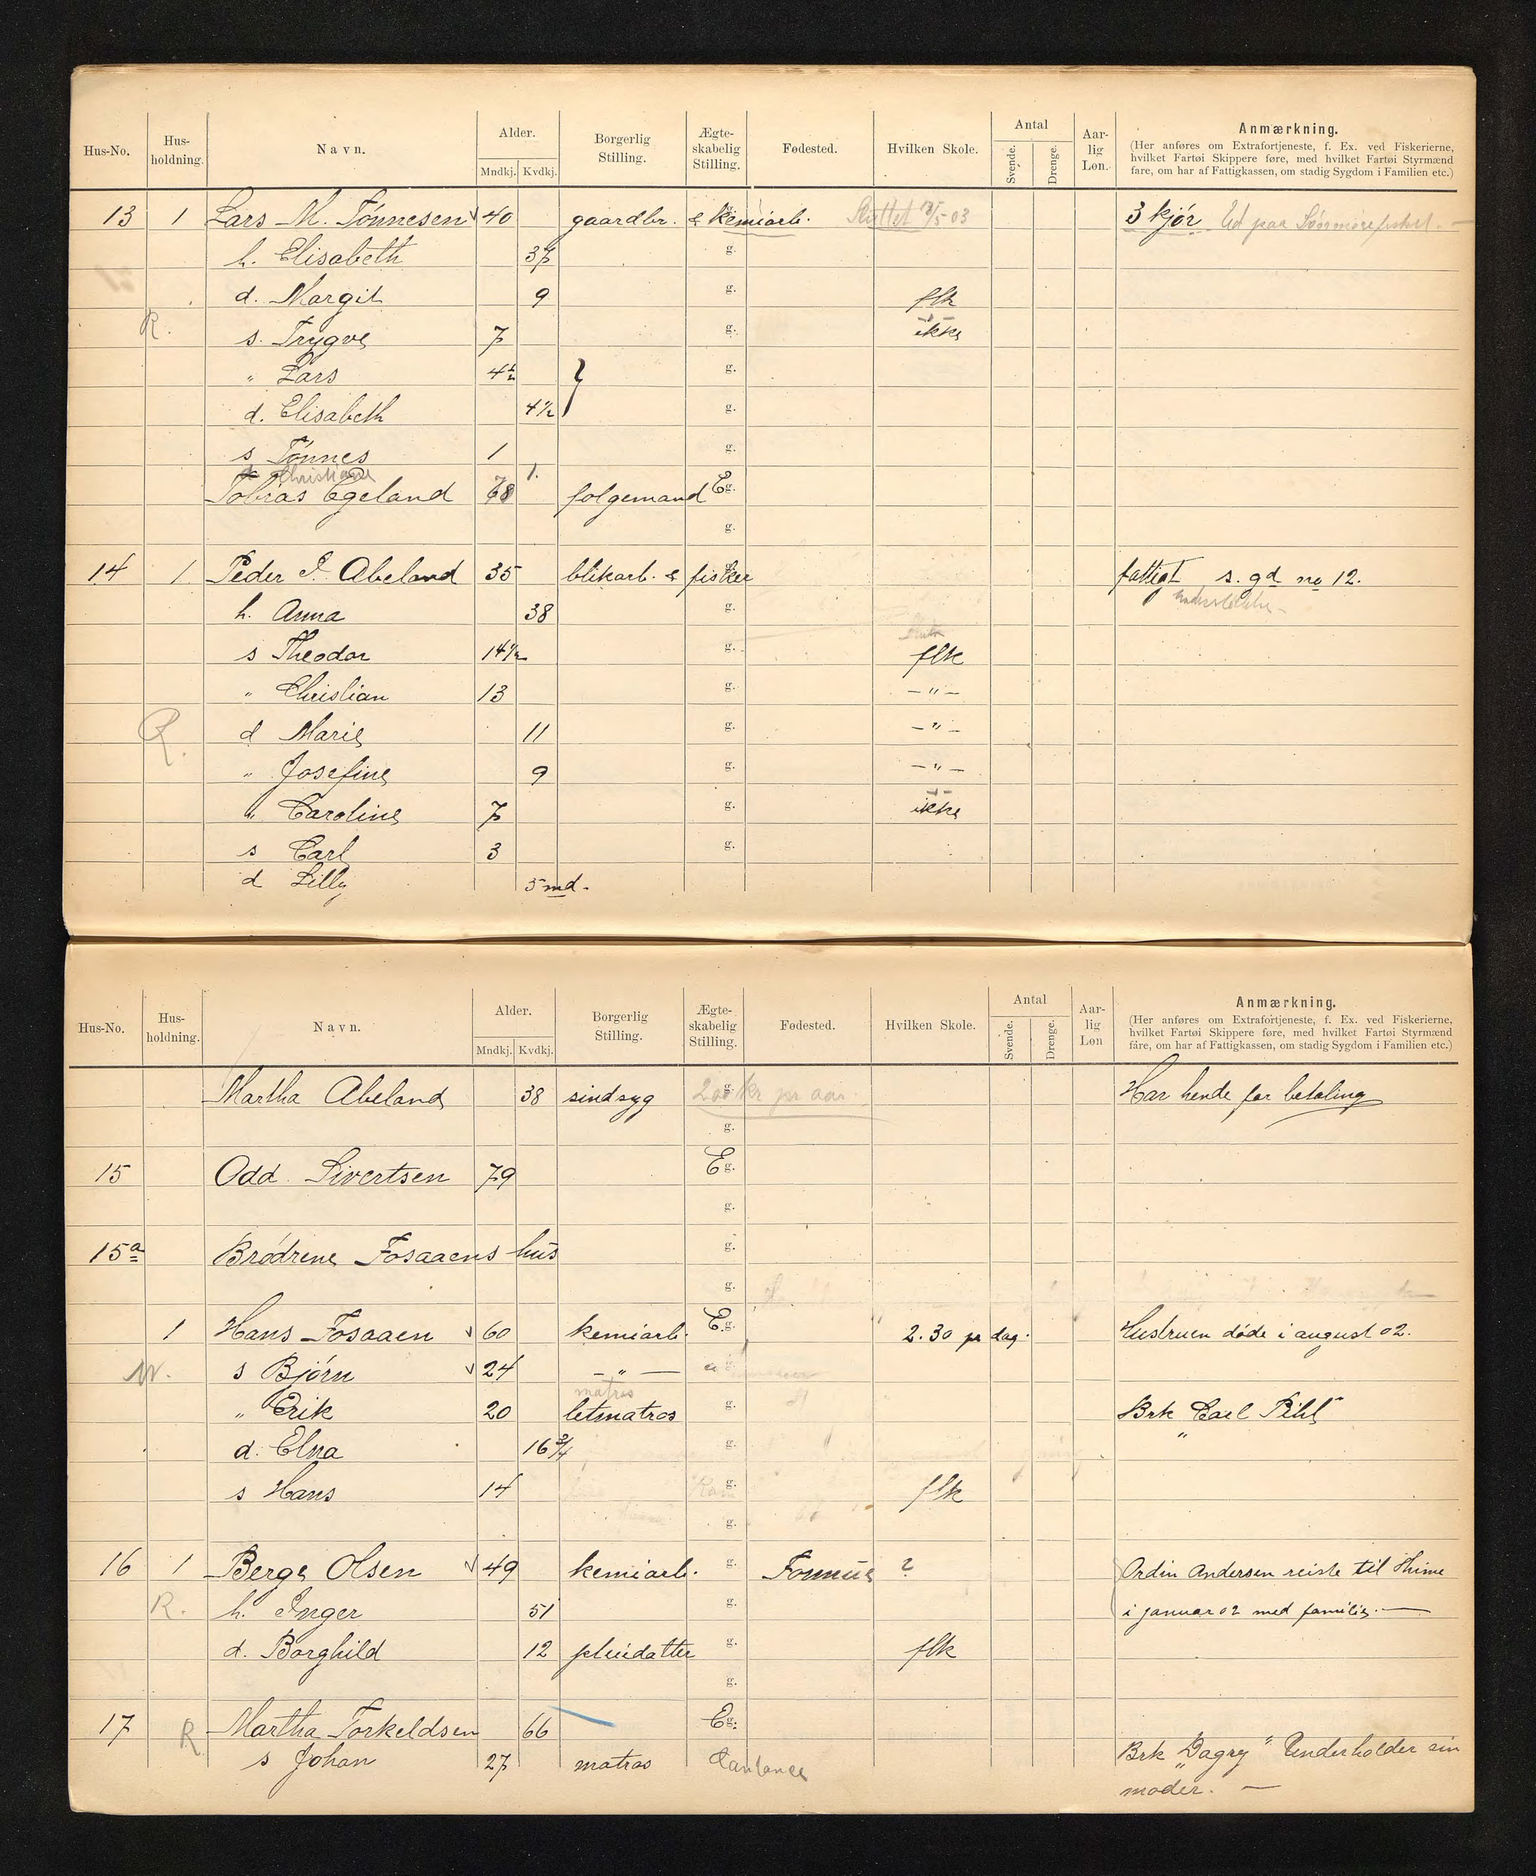 Hus-No. Hus-holdning. Navn. Alder. Mndkj. Kvdkj. Borgerlig Stilling. Ægte-skabelig Stilling. Fødested. Hvilken Skole. Antal Svende. Drenge. Aar-lig Løn. Anmærkning.
(Her anføres om Extrafortjeneste, f. Ex. ved Fiskerierne,
hvilket Fartøi Skippere føre, med hvilket Fartøi Styrmænd
fare, om har af Fattigkassen, om stadig Sygdom i Familien etc.)
13 1 Lars M. Tønnesen 40 gaardbr. & kemiarb. g. 03 3 kjør Ud paa
h. Elisabeth 37 g.
d. Margit 9 g. flk
R. s. Trygve 7 g. ikke
" Lars 4½ g.
d. Elisabeth 4½ g.
s Tønnes 1 g.
Christiane 1.
Tobias Egeland 78 folgemand E g.
g.
14 1 Peder I. Abeland 35 blikarb. & fisker g. fattigt s. gd no 12.
h. Anna 38 g.
s Theodor 14½ g. flk
" Christian 13 g. – " –
R. d Marie 11 g. – " –
" Josefine 9 g. – " –
" Caroline 7 g. ikke
s Carl 3 g.
d Lilly 5 md.
Hus-No. Hus-holdning. Navn. Alder. Mndkj. Kvdkj. Borgerlig Stilling. Ægte-skabelig Stilling. Fødested. Hvilken Skole. Antal Svende. Drenge. Aar-lig Løn Anmærkning.
(Her anføres om Extrafortjeneste, f. Ex. ved Fiskerierne,
hvilket Fartøi Skippere føre, med hvilket Fartøi Styrmænd
fare, om har af Fattigkassen, om stadig Sygdom i Familien etc.)
Martha Abeland 38 sindsyg g. 200 kr pr aar. Har hende for betaling
g.
15 Odd Sivertsen 79 E g.
g.
15a Brødrene Fosaaens hus g.
g.
1 Hans Fosaaen 60 kemiarb. E g. 2.30 pr dag. Hustruen døde i august 02.
s Bjørn 24 – " – g.
matros
" Erik 20 letmatros g. Brk "Carl Pihl"
d. Elna 16¾ g.
s Hans 14 g. flk
g.
16 1 Berge Olsen 49 kemiarb. g. ? Ordin Andersen reiste til Thime
R. h. Inger 51 g. i januar 02 med familie.
d. Borghild 12 pleiedatter g. flk
g.
17 R Martha Torkeldsen 66 E g.
s Johan 27 matros Brk "Dagry" Underholder sin
moder.